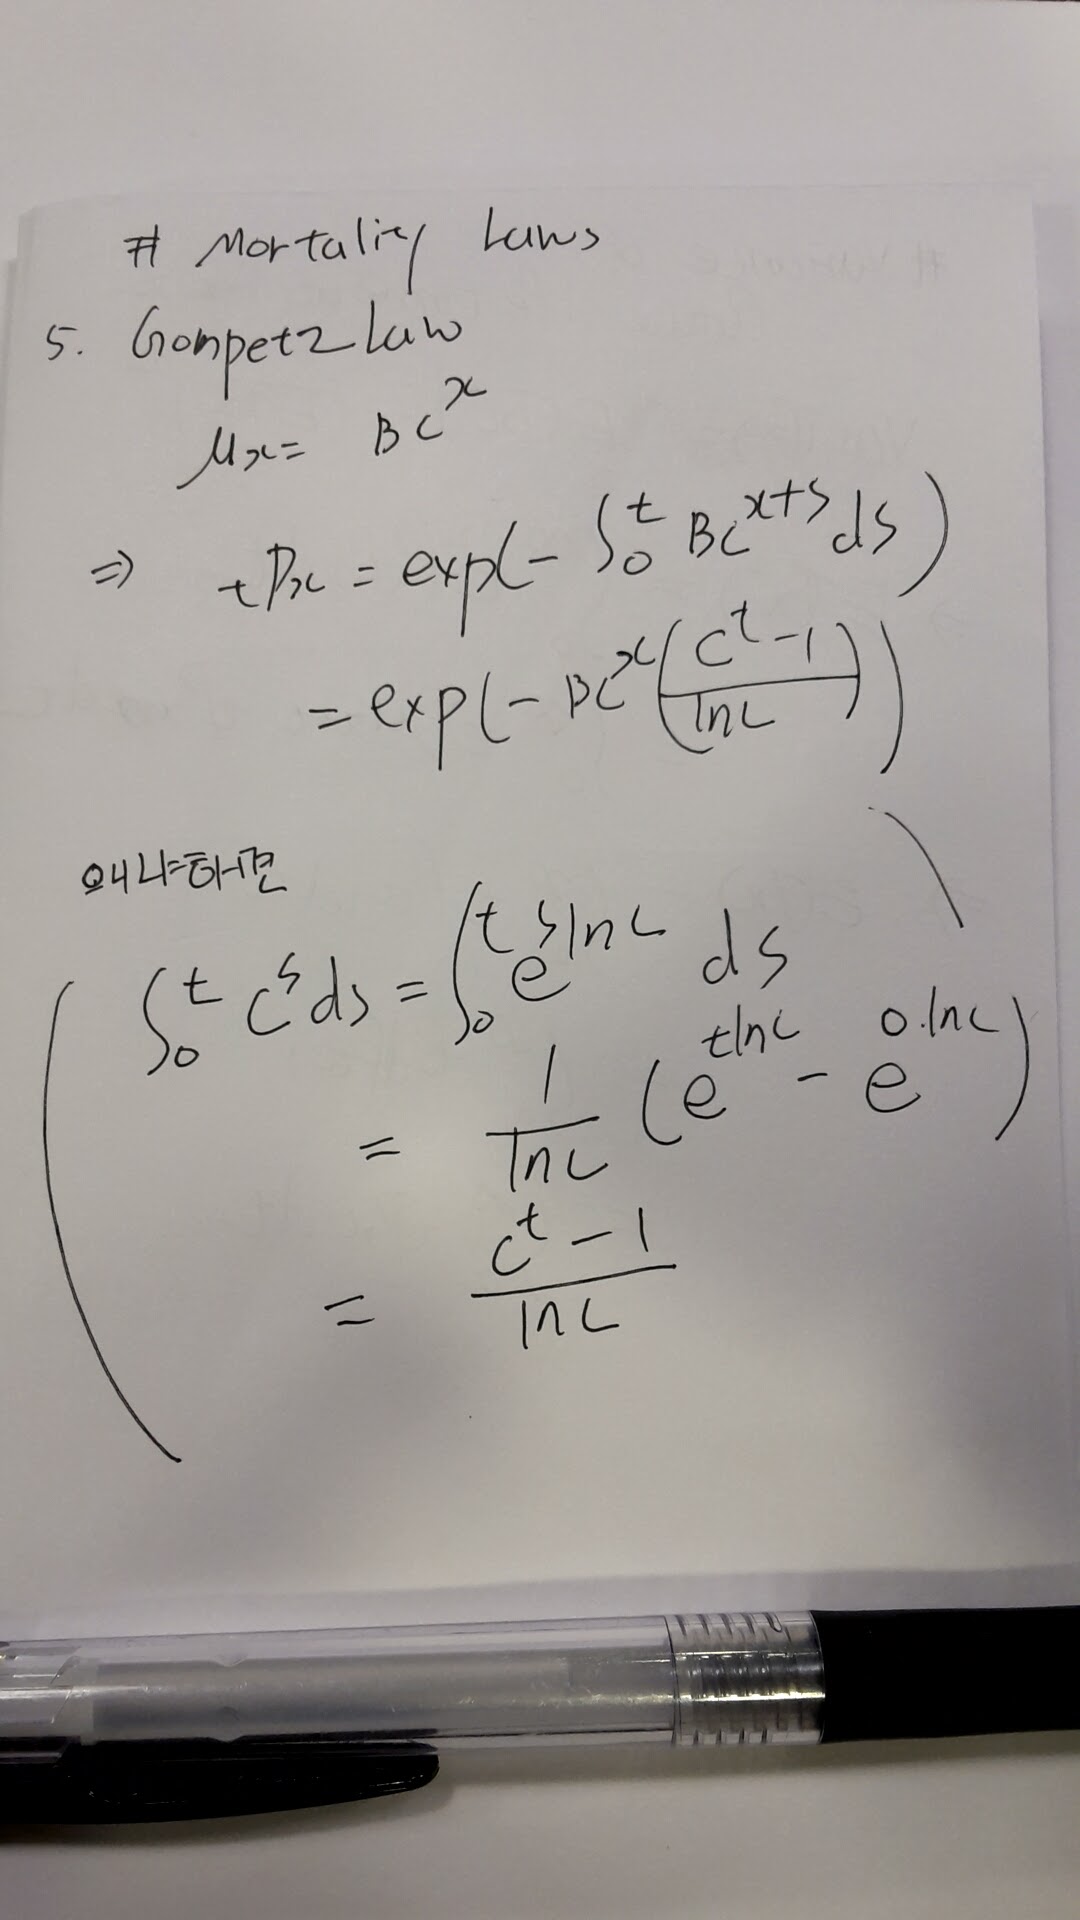 # Mortality Laws
5. Gompetz Law
μx = BC^x
⇒ tPx = exp(- ∫₀^t BC^(x+s) ds)
= exp(- BC^x ((C^t - 1)/lnC))
왜냐하면
∫₀^t C^s ds = ∫₀^t e^(slnC) ds
= 1/lnC (e^(tlnC) - e^(0·lnC))
= (C^t - 1)/lnC